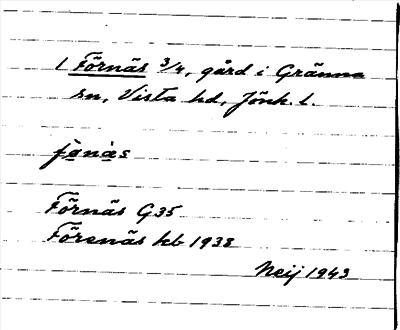 1 Förnäs 3/4, gård i Gränna
sn, Vista hd, Jönk. l.
fọ̈nà̤s
Förnäs G35
Förenäs kb 1938
Neij 1943